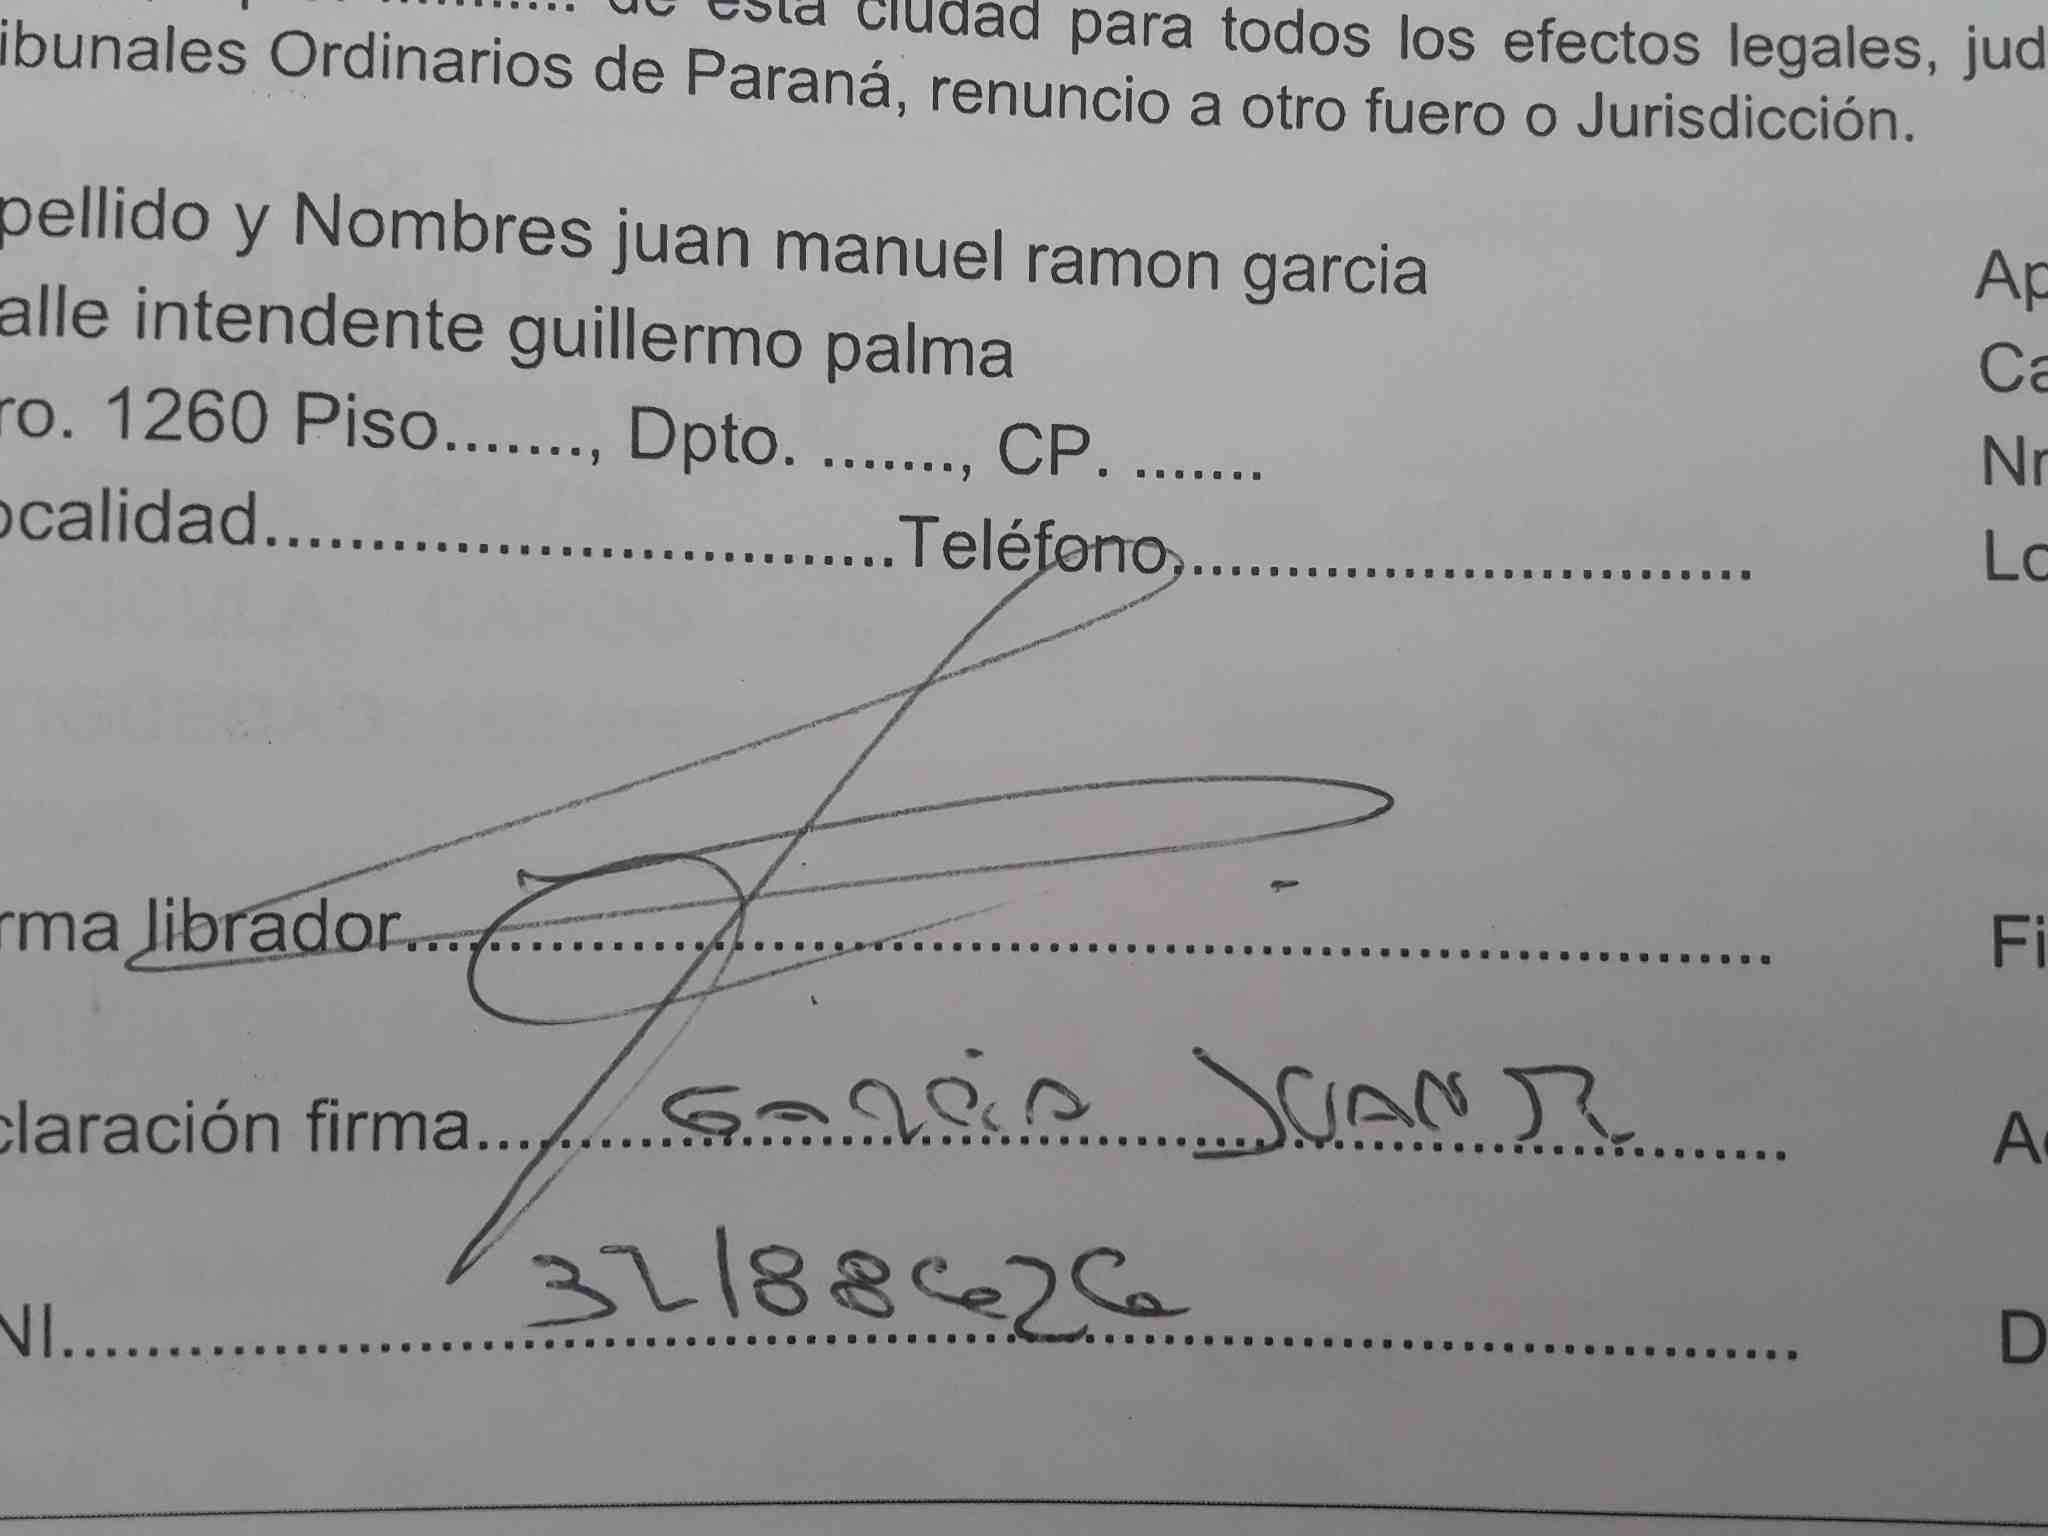 de esta ciudad para todos los efectos legales, jud
ibunales Ordinarios de Paraná, renuncio a otro fuero o Jurisdicción.
pellido y Nombres juan manuel ramon garcia
Ap
alle intendente guillermo palma
Ca
ro. 1260 Piso......., Dpto. ......., CP. .......
Nr
ocalidad..............................Teléfono............................
Lo
rma librador..................................................................
Fi
claración firma.... Garcia JUAN R. .......
Ac
NI...................... 32188626 ..................................
D